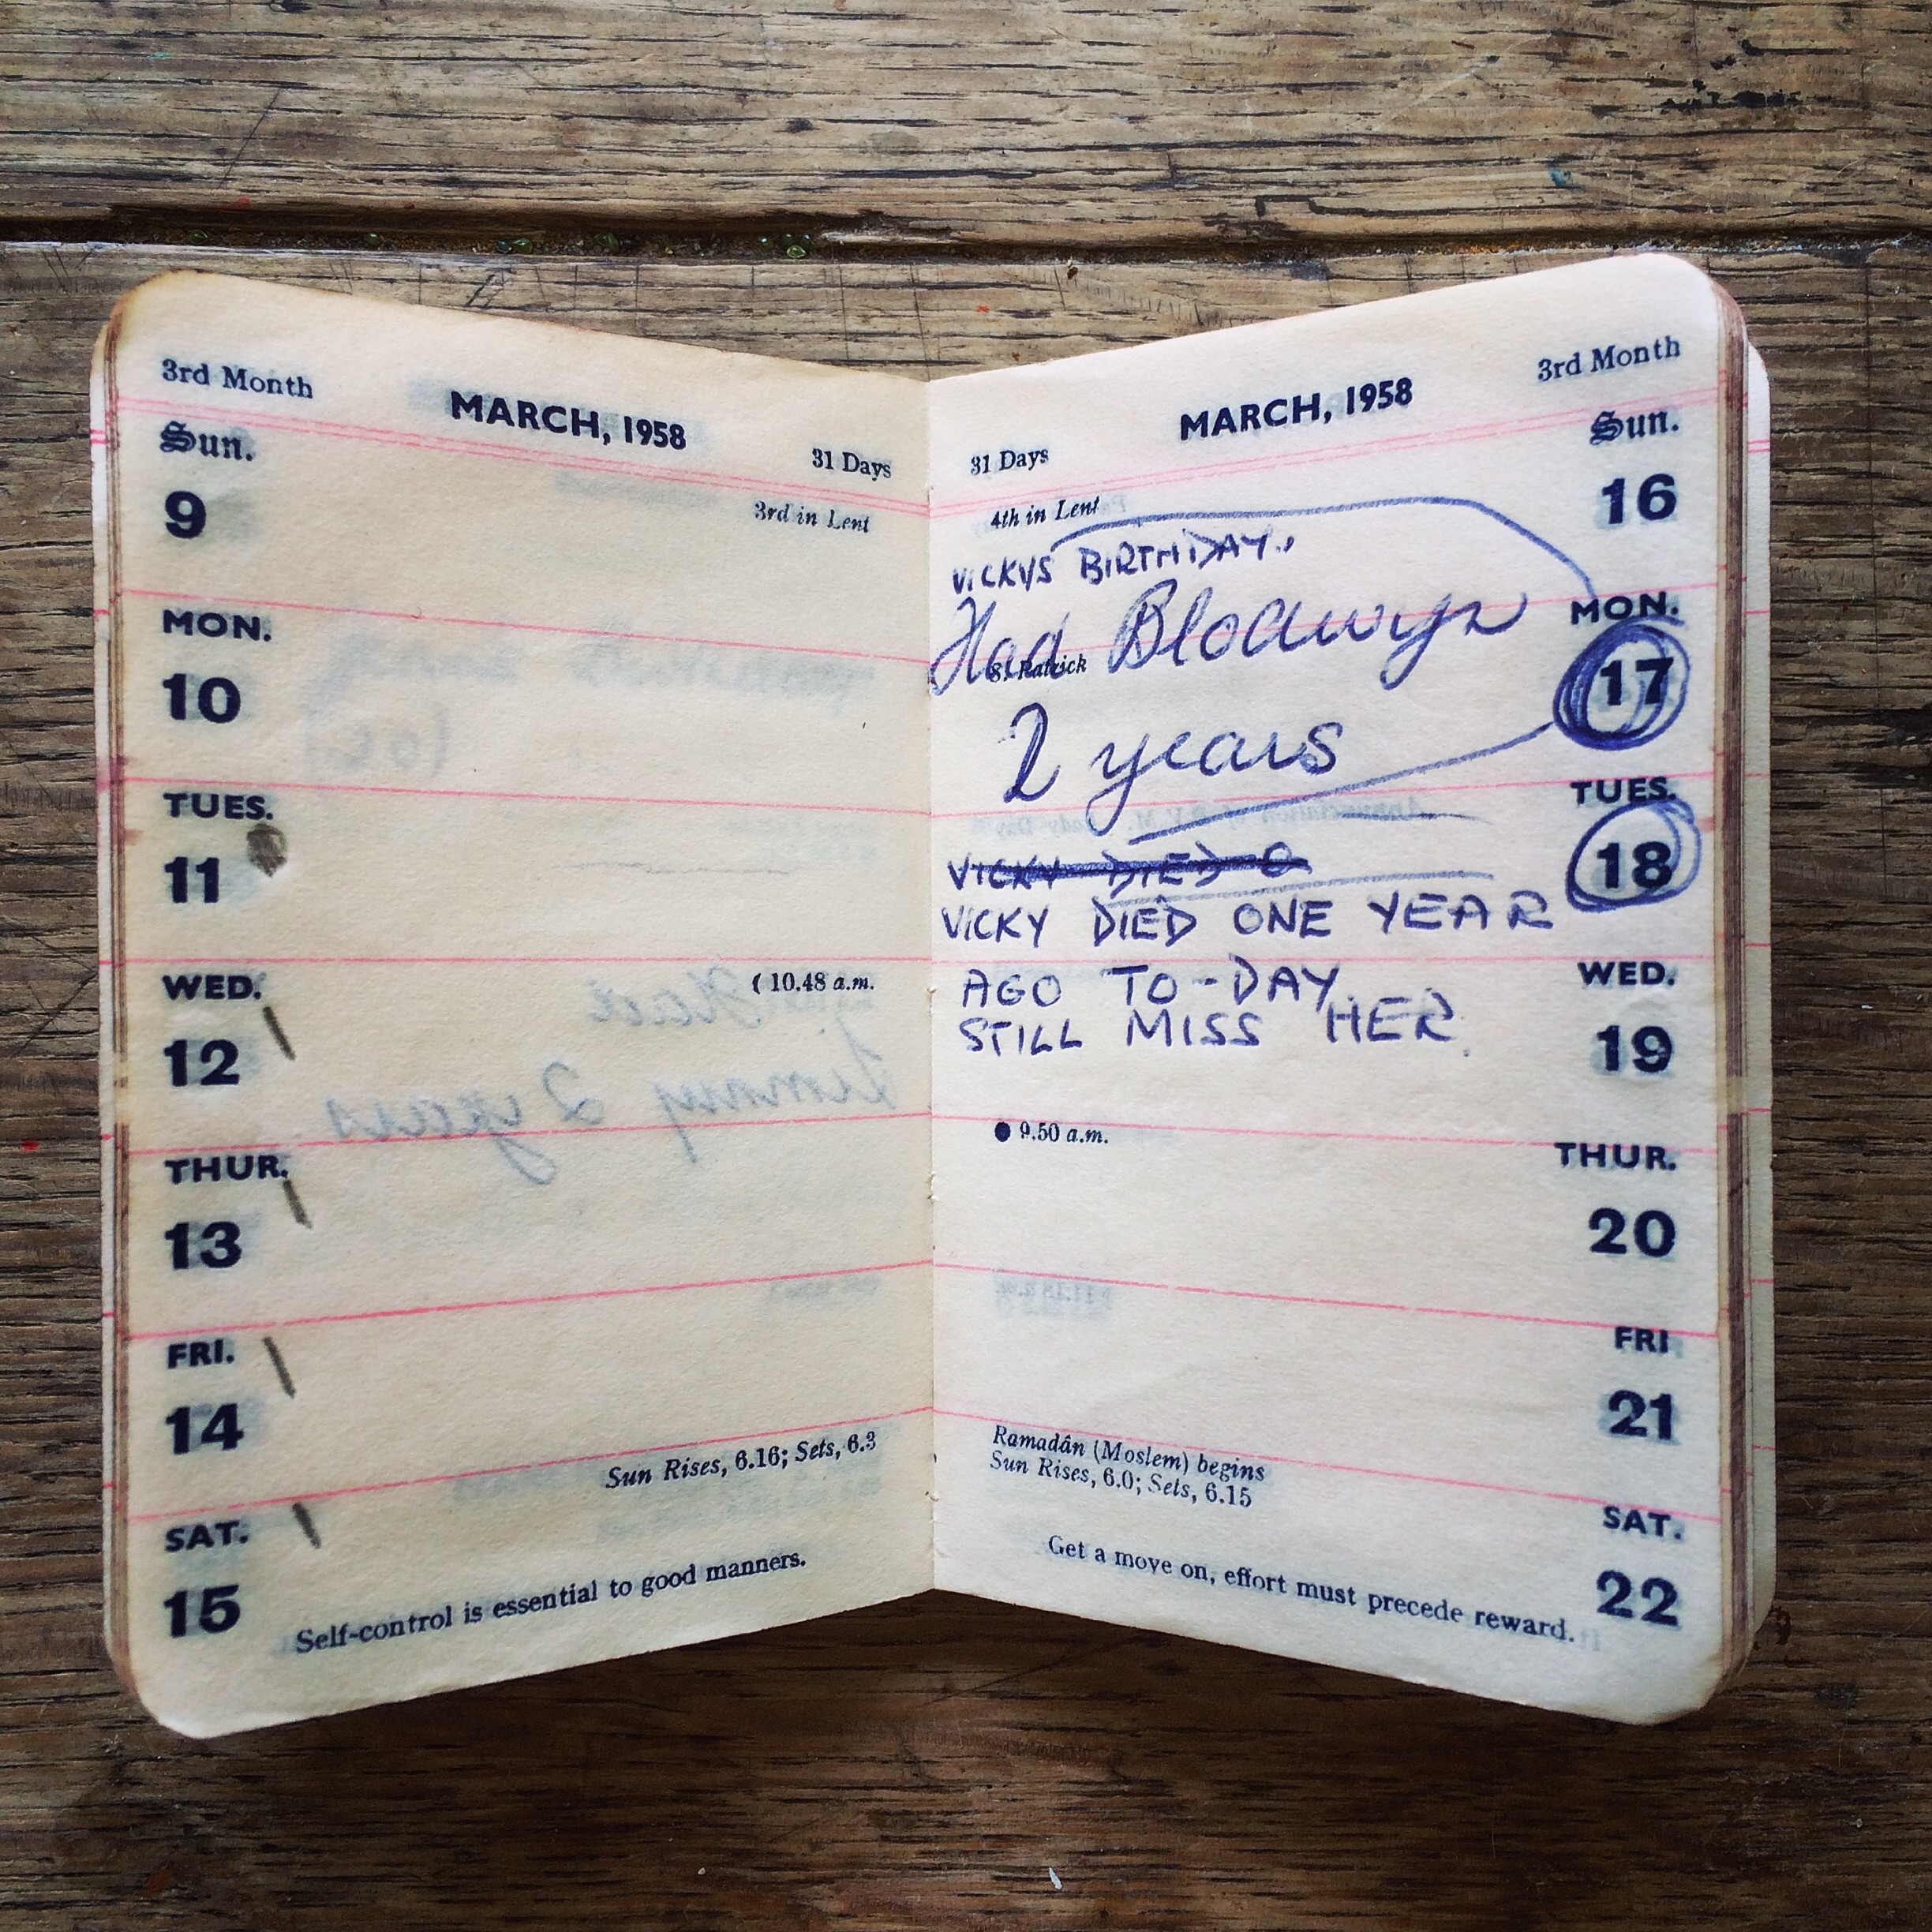 3rd Month
MARCH, 1958
31 Days
Sun.
9
3rd in Lent
MON.
10
TUES.
11
WED.
12
( 10.48 a.m.
THUR.
13
FRI.
14
Sun Rises, 6.16; Sets, 6.3
SAT.
15
Self-control is essential to good manners.
3rd Month
MARCH, 1958
31 Days
Sun.
16
4th in Lent
VICKYS BIRTHDAY.
MON.
17
Had Blodwyn
St. Patrick
2 years
TUES.
18
VICKY DIED O
VICKY DIED ONE YEAR
AGO TO-DAY
STILL MISS HER.
WED.
19
THUR.
20
● 9.50 a.m.
FRI
21
Ramadân (Moslem) begins
Sun Rises, 6.0; Sets, 6.15
SAT.
22
Get a move on, effort must precede reward.